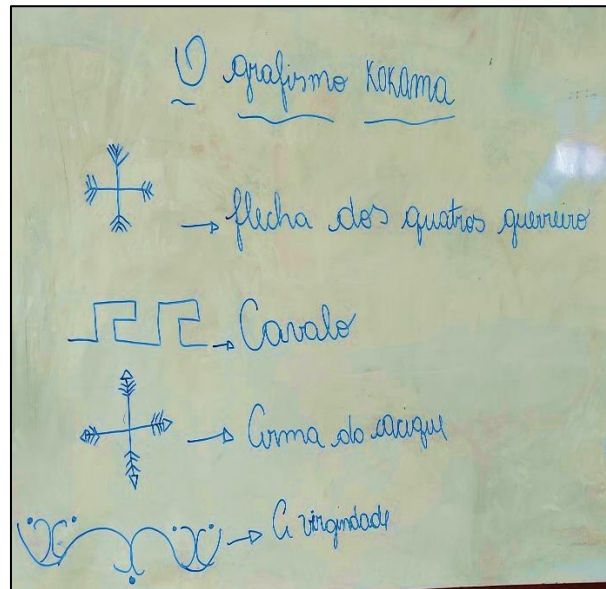 O grafismo KOKAMA
flecha dos quatros guerreiro
Cavalo
Arma do cacique
A virgindade